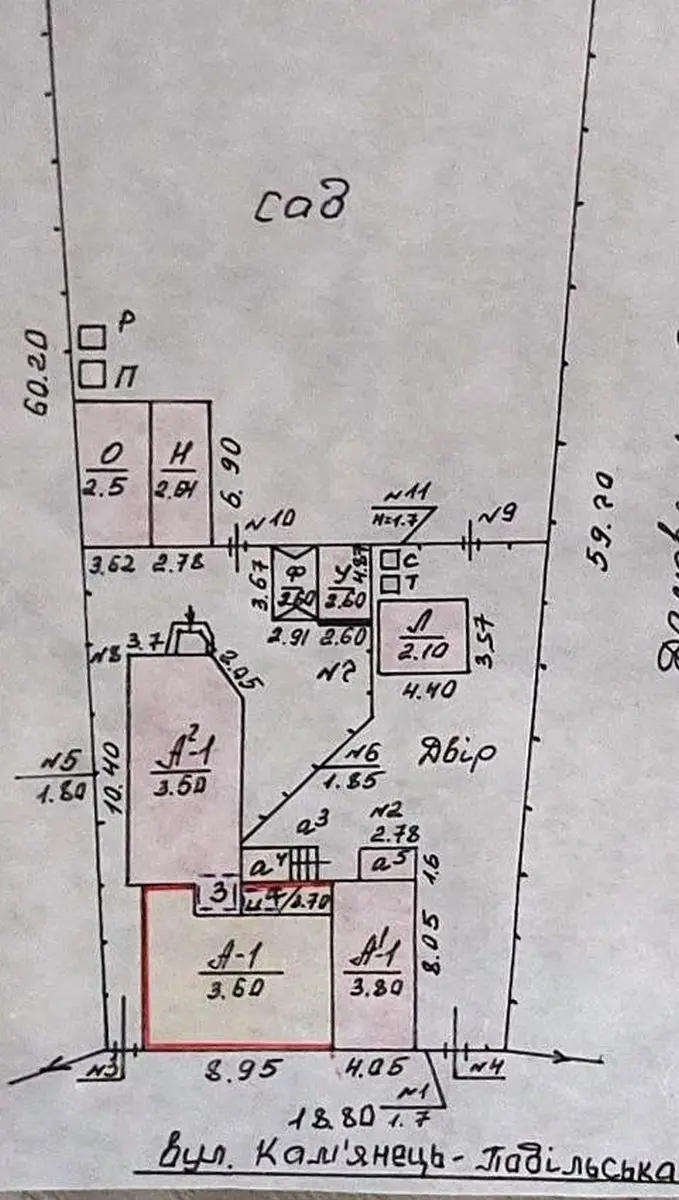 сад
Р
60.20
П
О
2.5
Н
2.64
6.90
59.20
№11
н=1.7
№10
№9
3.62
2.78
3.67
Ф
2.60
У
2.60
4.87
С
Т
2.91
2.60
Л
2.10
3.57
4.40
№8
3.7
2.05
№7
А²-1
3.50
10.40
№5
1.80
№6
1.85
Двір
а³
№2
2.78
а⁴
а⁵
1.6
З
2.70
А-1
3.60
А¹-1
3.80
8.05
№3
8.95
4.05
№4
№1
1.7
18.80
вул. Кам'янець-Подільська